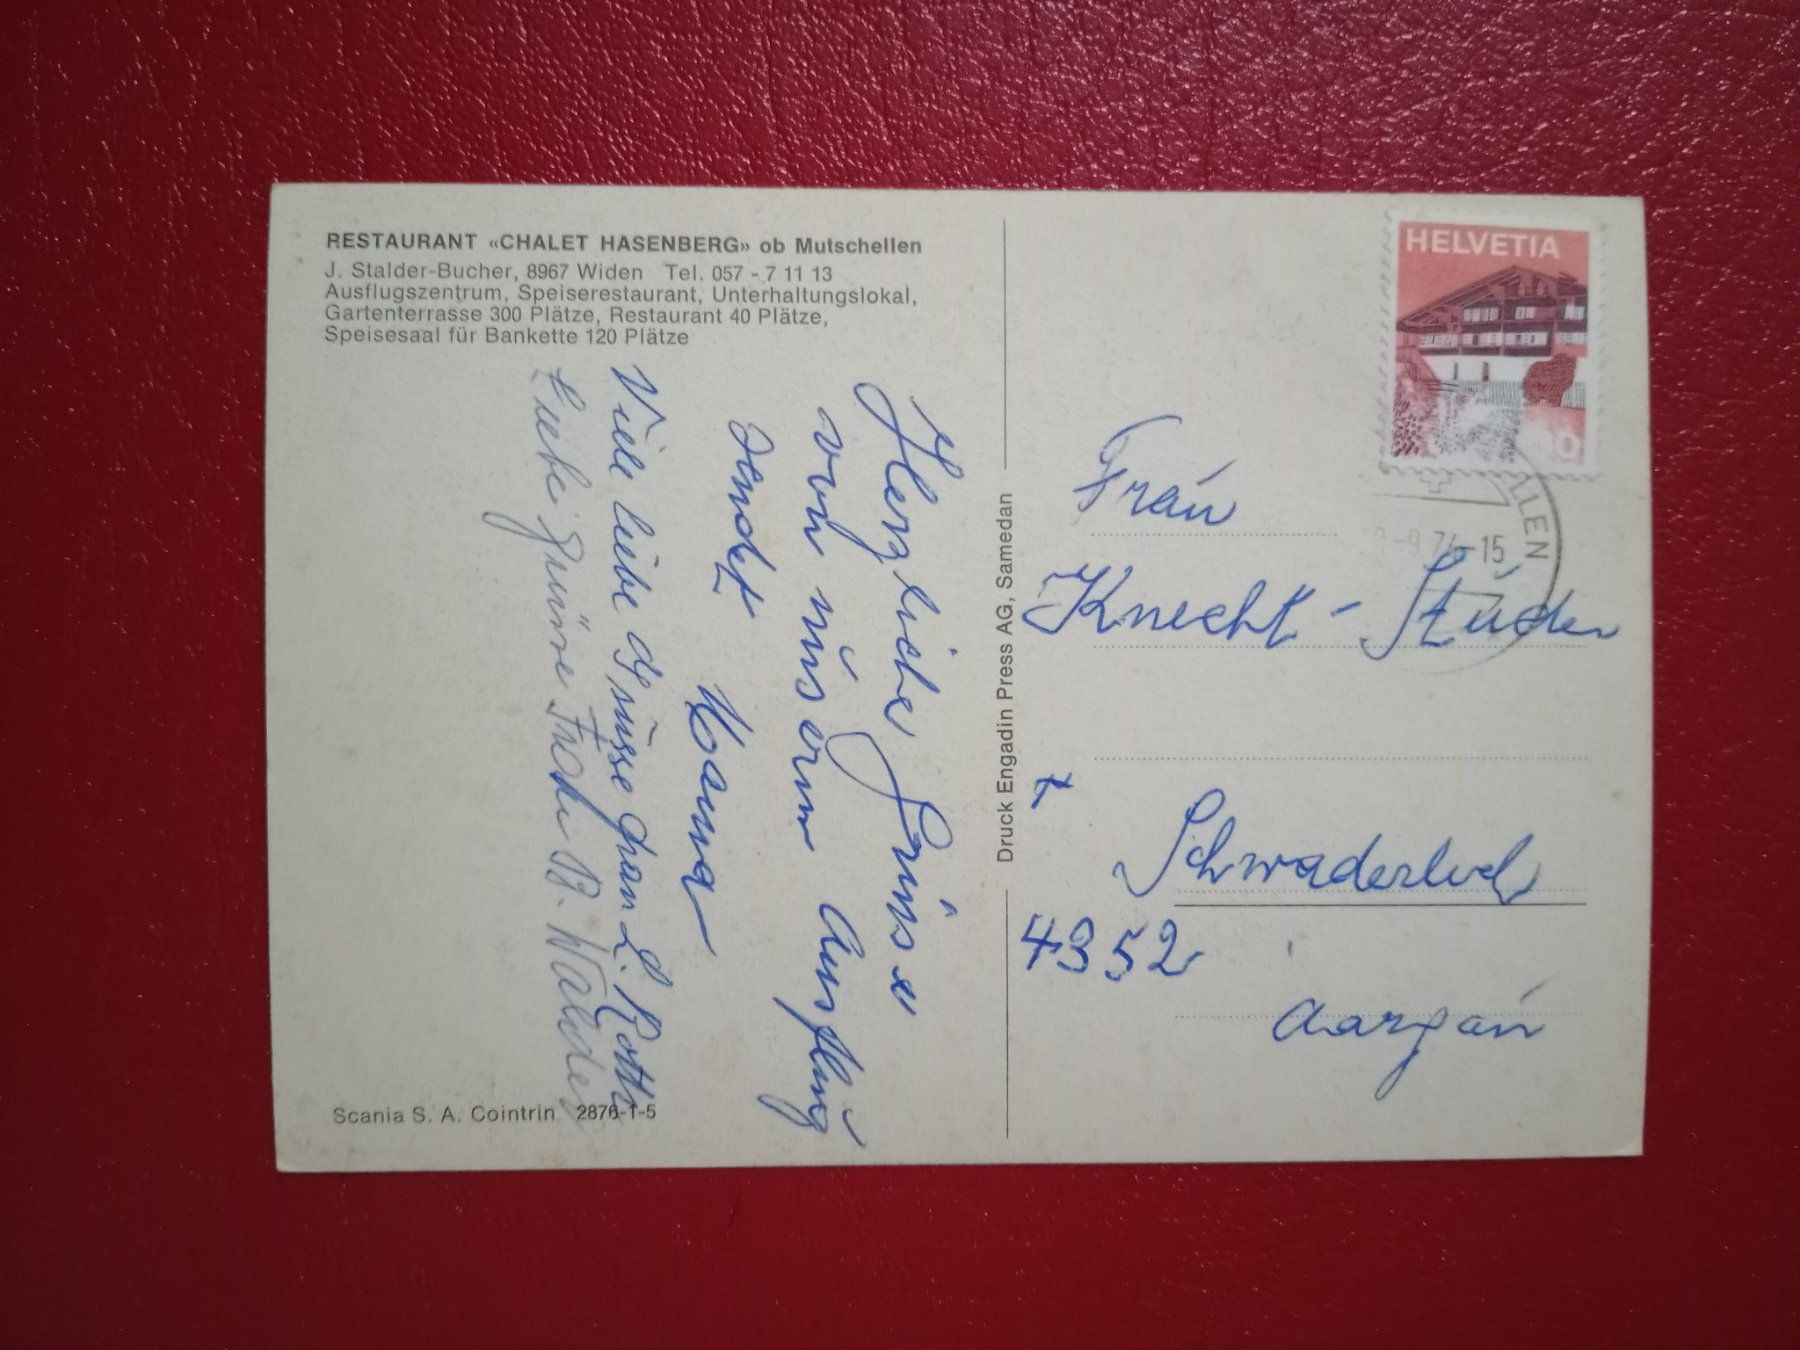 RESTAURANT «CHALET HASENBERG» ob Mutschellen
J. Stalder-Bucher, 8967 Widen Tel. 057 - 7 11 13
Ausflugszentrum, Speiserestaurant, Unterhaltungslokal,
Gartenterrasse 300 Plätze, Restaurant 40 Plätze,
Speisesaal für Bankette 120 Plätze
Herzliche Grüsse
von unserm Ausflug
sendet
Mama
Viele liebe Grüsse Frau L.
Liebe Grüsse Frau B. Walder
Scania S. A. Cointrin 2876-1-5
Druck Engadin Press AG, Samedan
HELVETIA
LLEN
-9.74-15
Frau
Knecht - Studer
Schwaderloch
4352
Aargau